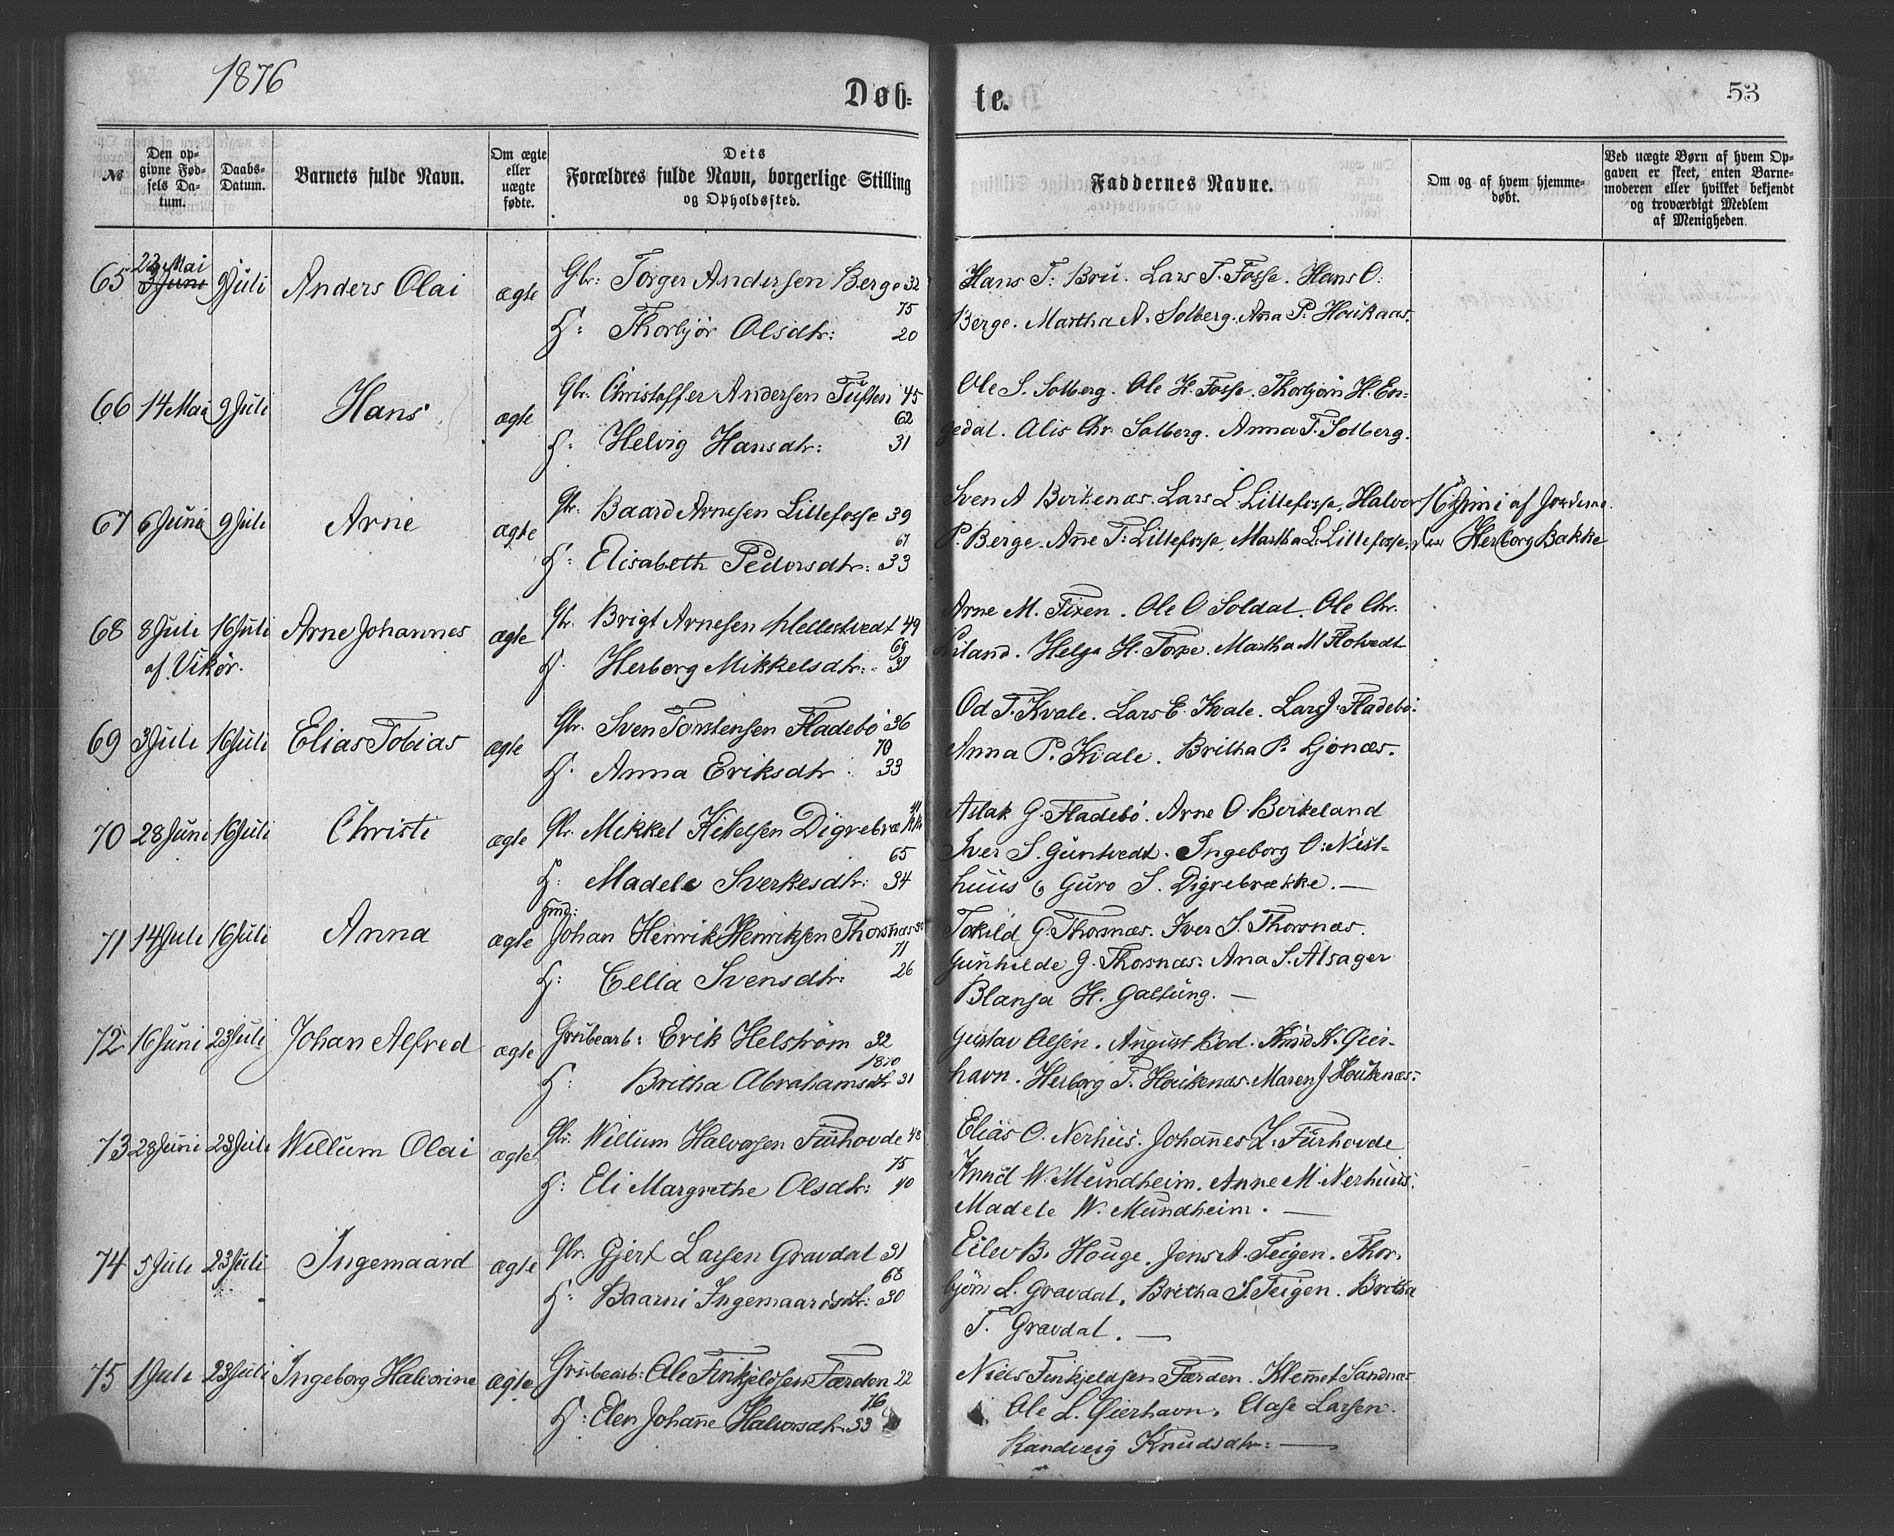 1876
Døb-te.
53
№
Den op-
givne Fød-
sels Da-
tum.
Daabs-
Datum.
Barnets fulde Navn.
Om ægte
eller
uægte
fødte.
Dets
Forældres fulde Navn, borgerlige Stilling
og Opholdssted.
Faddernes Navne.
Om og af hvem hjemme-
døbt.
Ved uægte Børn af hvem Op-
gaven er skeet, enten Barne-
moderen eller hvilket bekjendt
og troværdigt Medlem
af Menigheden.
22 Mai
65 3 Juni 9 Juli Anders Olai ægte Gbr: Torger Andersen Berge 32 Hans T: Bru. Lars T. Fosse. Hans O:
75
H: Thorbjør Olsdtr: 20 Berge. Martha A. Solberg. Anna P. Houkaas.
66 14 Mai 9 Juli Hans ægte Gbr. Christoffer Andersen Tuften 45 Ole S. Solberg. Ole H. Fosse. Thorbjørn H. En-
62
H: Helvig Hansdtr: 31 gedal. Alis Chr. Solberg. Anna T. Solberg.
67 6 Juni 9 Juli Arne ægte Gbr. Baard Arnesen Lillefosse 39 Sven A Birkenæs. Lars L. Lillefosse, Halvor 16 Juni af Jordemo
67
H: Elisabeth Pedersdtr: 33 P. Berge. Anne T: Lillefosse, Martha L. Lillefosse, Herborg Bakke
68 8 Juli 16 Juli Arne Johannes ægte Gbr. Brigt Arnesen Mellestvedt 49 Arne M. Fixen. Ole O Soldal. Ole Chr.
69
af Vikør. H. Herborg Mikkelsdtr: Liland. Helga H. Toxe. Martha M Flotvedt
69 3 Juli 16 Juli Elias Tobias ægte Gbr. Sven Torstensen Fladebø 36 Od T. Kvale. Lars E. Kvale. Lars J. Fladebø.
70
H. Anna Eriksdtr 33 Anna P. Kvale. Britha P. Ljonæs.
70 28 Juni 16 Juli Christi ægte Gbr. Mikkel Kittelsen Digrebræk 41 Aslak G. Fladebø. Arne O. Birkeland
65
H: Madele Sverkesdtr: 34 Iver S. Guntvedt. Ingeborg O: Nist-
huus o Guro S. Digrebrække. —
71 14 Juli 16 Juli Anna ægte Johan Henrik Henriksen Thorsnæs Torkild G. Thorsnæs. Iver S. Thorsnæs.
71
H: Cella Svensdtr: 26 Gunhilde G. Thorsnæs. Ana S. Alsager
Blansa H. Galtung. —
72 16 Juni 23 Juli Johan Alfred ægte Grubearb: Erik Helstrøm 32 Gustav Olsen. August Bod. Knud K. Gier-
1870
H: Britha Abrahamsdtr 31 havn. Herborg T. Houkenæs. Maren J Houkenæs.
73 28 Juni 23 Juli Willum Olai ægte Gbr. Willum Halvorsen Furhovde 48 Elias O. Nerhus. Johannes L. Furhovde
75
H: Eli Margrethe Olsdtr: 40 Knud W. Mundheim. Anne M. Nerhuus.
Madele W. Mundheim. —
74 5 Juli 23 Juli Ingemaard ægte Gbr. Gjert Larsen Gravdal 31 Eilev B. Houge. Jens A. Teigen. Thor-
68
H: Baarni Ingemaardsdtr: 30 bjørn L. Gravdal. Britha S. Teigen. Britha
T. Gravdal. —
75 1 Juli 23 Juli Ingeborg Halvorine ægte Grubearb: Ole Finkjeldsen Færden 22 Niels Finkjeldsen Færden. Klemet Sandnæs
76
H: Elen Johanne Halvorsdtr. 33 Ole L. Gierhavn. Aase Larsen.
Randveig Knudsdtr: —